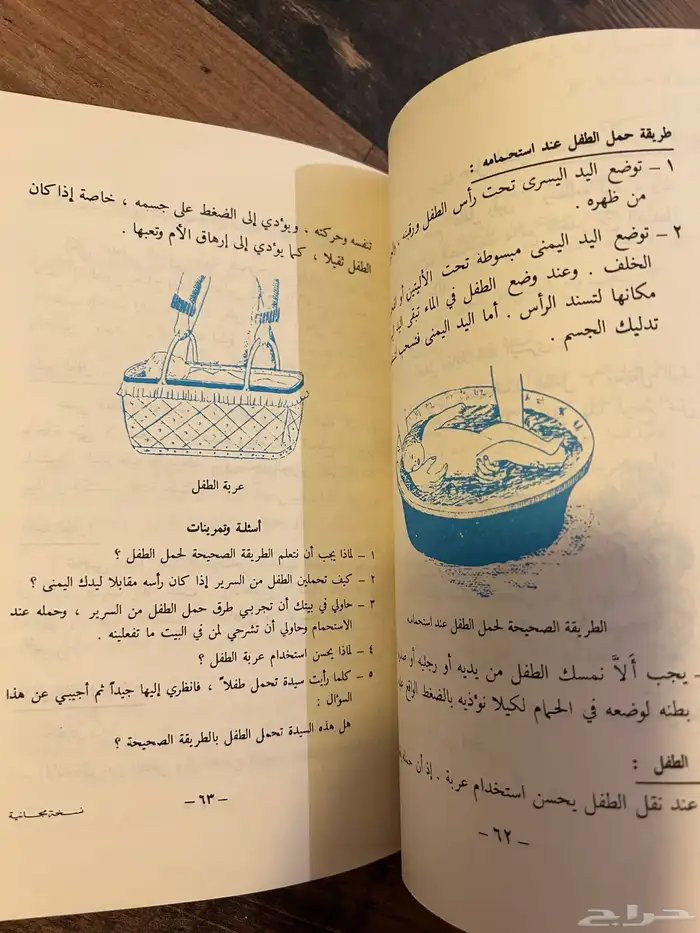 طريقة حمل الطفل عند استحمامه :
١ – توضع اليد اليسرى تحت رأس الطفل ورقبته ،
من ظهره .
٢ – توضع اليد اليمنى مبسوطة تحت الأليتين أو
الخلف . وعند وضع الطفل في الماء تبقى اليد
مكانها لتسند الرأس . أما اليد اليمنى فتسحب
تدليك الجسم .
الطريقة الصحيحة لحمل الطفل عند استحمامه
يجب ألاَّ نمسك الطفل من يديه أو رجليه أو
بطنه لوضعه في الحمام لكيلا نؤذيه بالضغط الواقع
الطفل :
عند نقل الطفل يحسن استخدام عربة . إذ أن
– ٦٢ –
تنفسه وحركته . ويؤدي إلى الضغط على جسمه ، خاصة إذا كان
الطفل ثقيلا ، كما يؤدي إلى إرهاق الأم وتعبها .
عربة الطفل
أسئلة وتمرينات
١ – لماذا يجب أن نتعلم الطريقة الصحيحة لحمل الطفل ؟
٢ – كيف تحملين الطفل من السرير إذا كان رأسه مقابلا ليدك اليمنى ؟
٣ – حاولي في بيتك أن تجربي طرق حمل الطفل من السرير ، وحمله عند
الاستحمام وحاولي أن تشرحي لمن في البيت ما تفعلينه .
٤ – لماذا يحسن استخدام عربة الطفل ؟
٥ – كلما رأيت سيدة تحمل طفلاً ، فانظري إليها جيداً ثم أجيبي عن هذا
السؤال :
هل هذه السيدة تحمل الطفل بالطريقة الصحيحة ؟
– ٦٣ –
نسخة مجانية
حراج